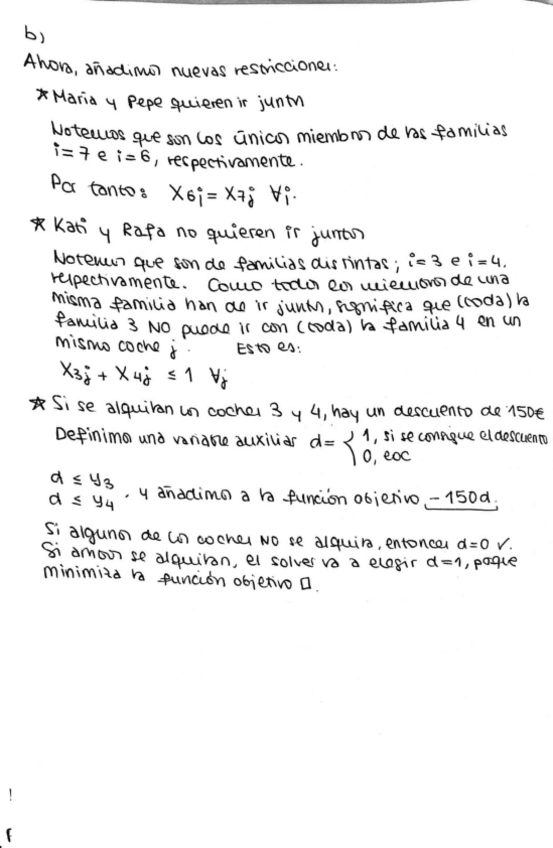 b)
Ahora, añadimos nuevas restricciones:
* Maria y Pepe quieren ir juntos
Notemos que son los únicos miembros de las familias
i=7 e i=6, respectivamente.
Por tanto: X6j = X7j ∀j.
* Kati y Rafa no quieren ir juntos
Notemos que son de familias distintas; i=3 e i=4,
respectivamente. Como todos los miembros de una
misma familia han de ir juntos, significa que (toda) la
familia 3 NO puede ir con (toda) la familia 4 en un
mismo coche j. Esto es:
X3j + X4j ≤ 1 ∀j
* Si se alquilan los coches 3 y 4, hay un descuento de 150€
Definimos una variable auxiliar d= { 1, si se consigue el descuento
0, eoc
d ≤ y3
d ≤ y4 . Y añadimos a la función objetivo -150d.
Si algunos de los coches NO se alquila, entonces d=0 ✓.
Si ambos se alquilan, el solver va a elegir d=1, poque
minimiza la función objetivo □.